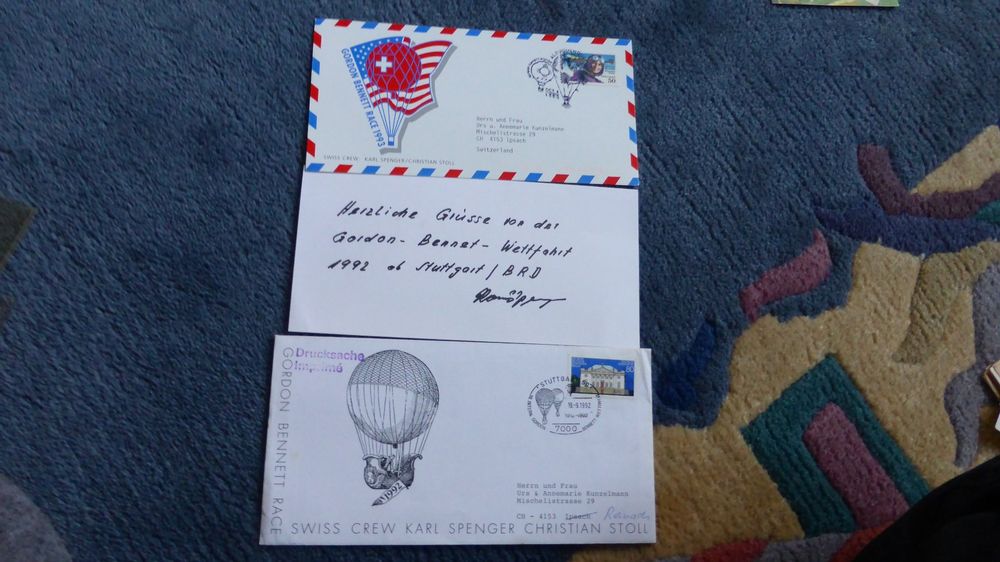 GORDON BENNETT RACE 1993
50
Herrn und Frau
Urs u. Annemarie Kunzelmann
Mischelistrasse 29
CH 4153 Ipsach
Switzerland
SWISS CREW: KARL SPENGER/CHRISTIAN STOLL
Herzliche Grüsse von der
Gordon-Bennet-Wettfahrt
1992 ab Stuttgart/BRD
Drucksache
Imprimé
GORDON BENNETT RACE
1992
80
STUTTGART
19.9.1992
7000
Herrn und Frau
Urs & Annemarie Kunzelmann
Mischelistrasse 29
CH - 4153 Ipsach
SWISS CREW KARL SPENGER CHRISTIAN STOLL